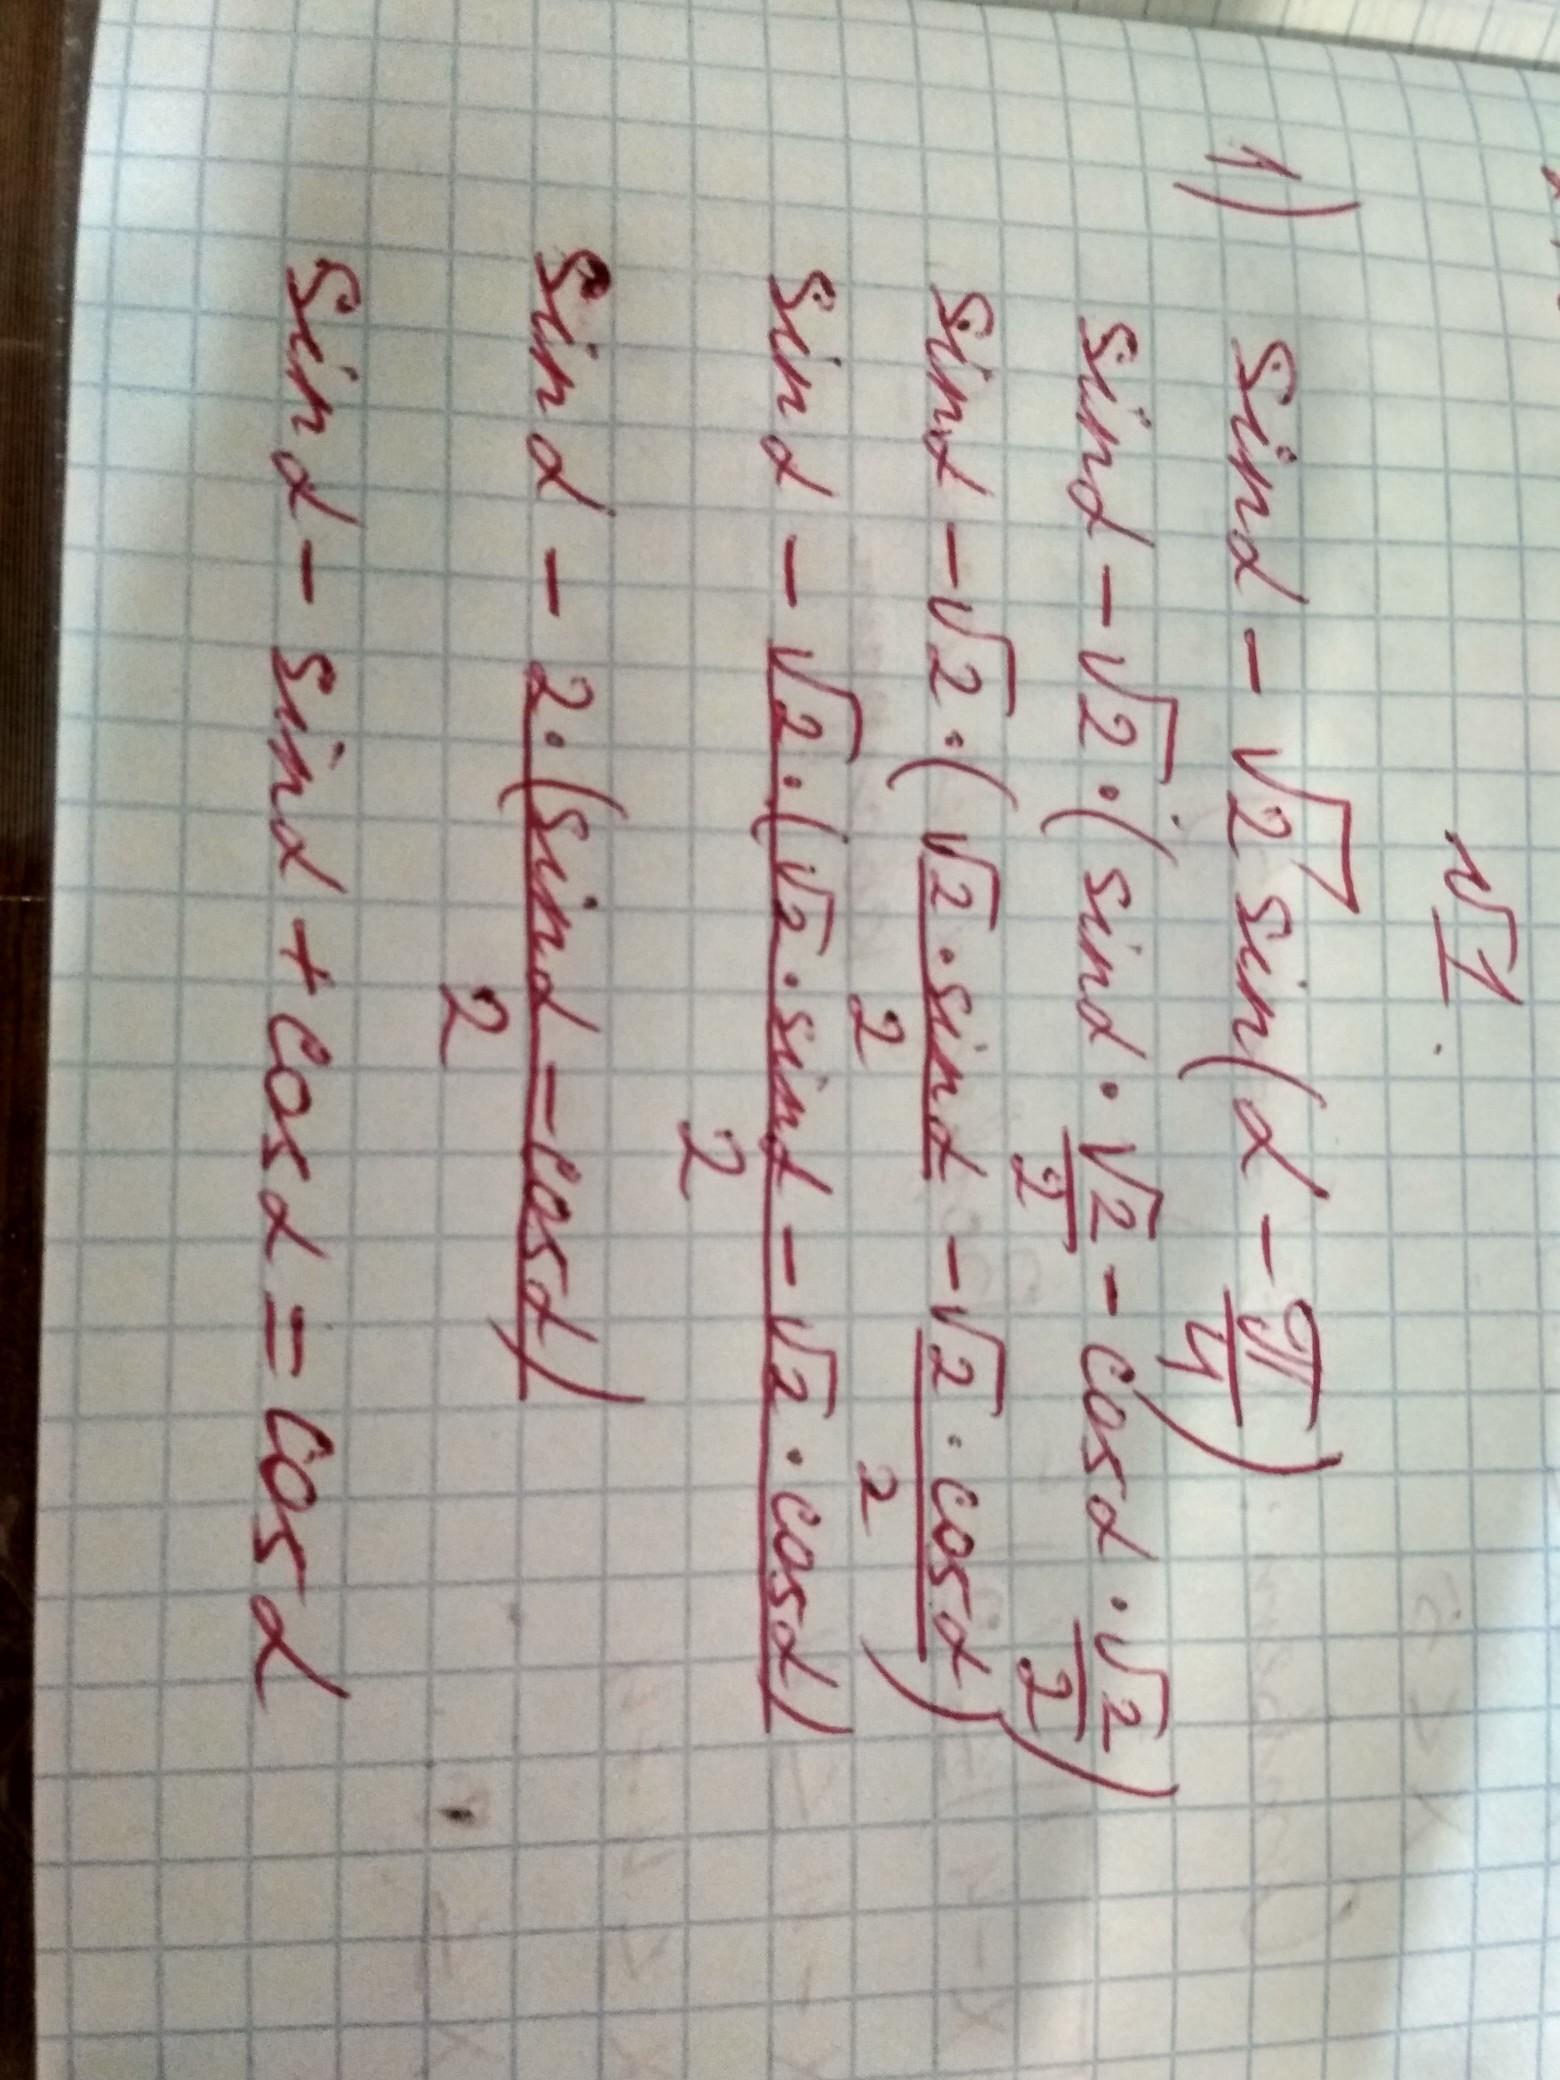 №1.
1) sinα - √2 sin(α - π/4)
sinα - √2 · (sinα · √2/2 - cosα · √2/2)
sinα - √2 · (√2 · sinα/2 - √2 · cosα/2)
sinα - √2 · (√2 · sinα - √2 · cosα)/2
sinα - 2 · (sinα = cosα)/2
sinα - sinα + cosα = cosα